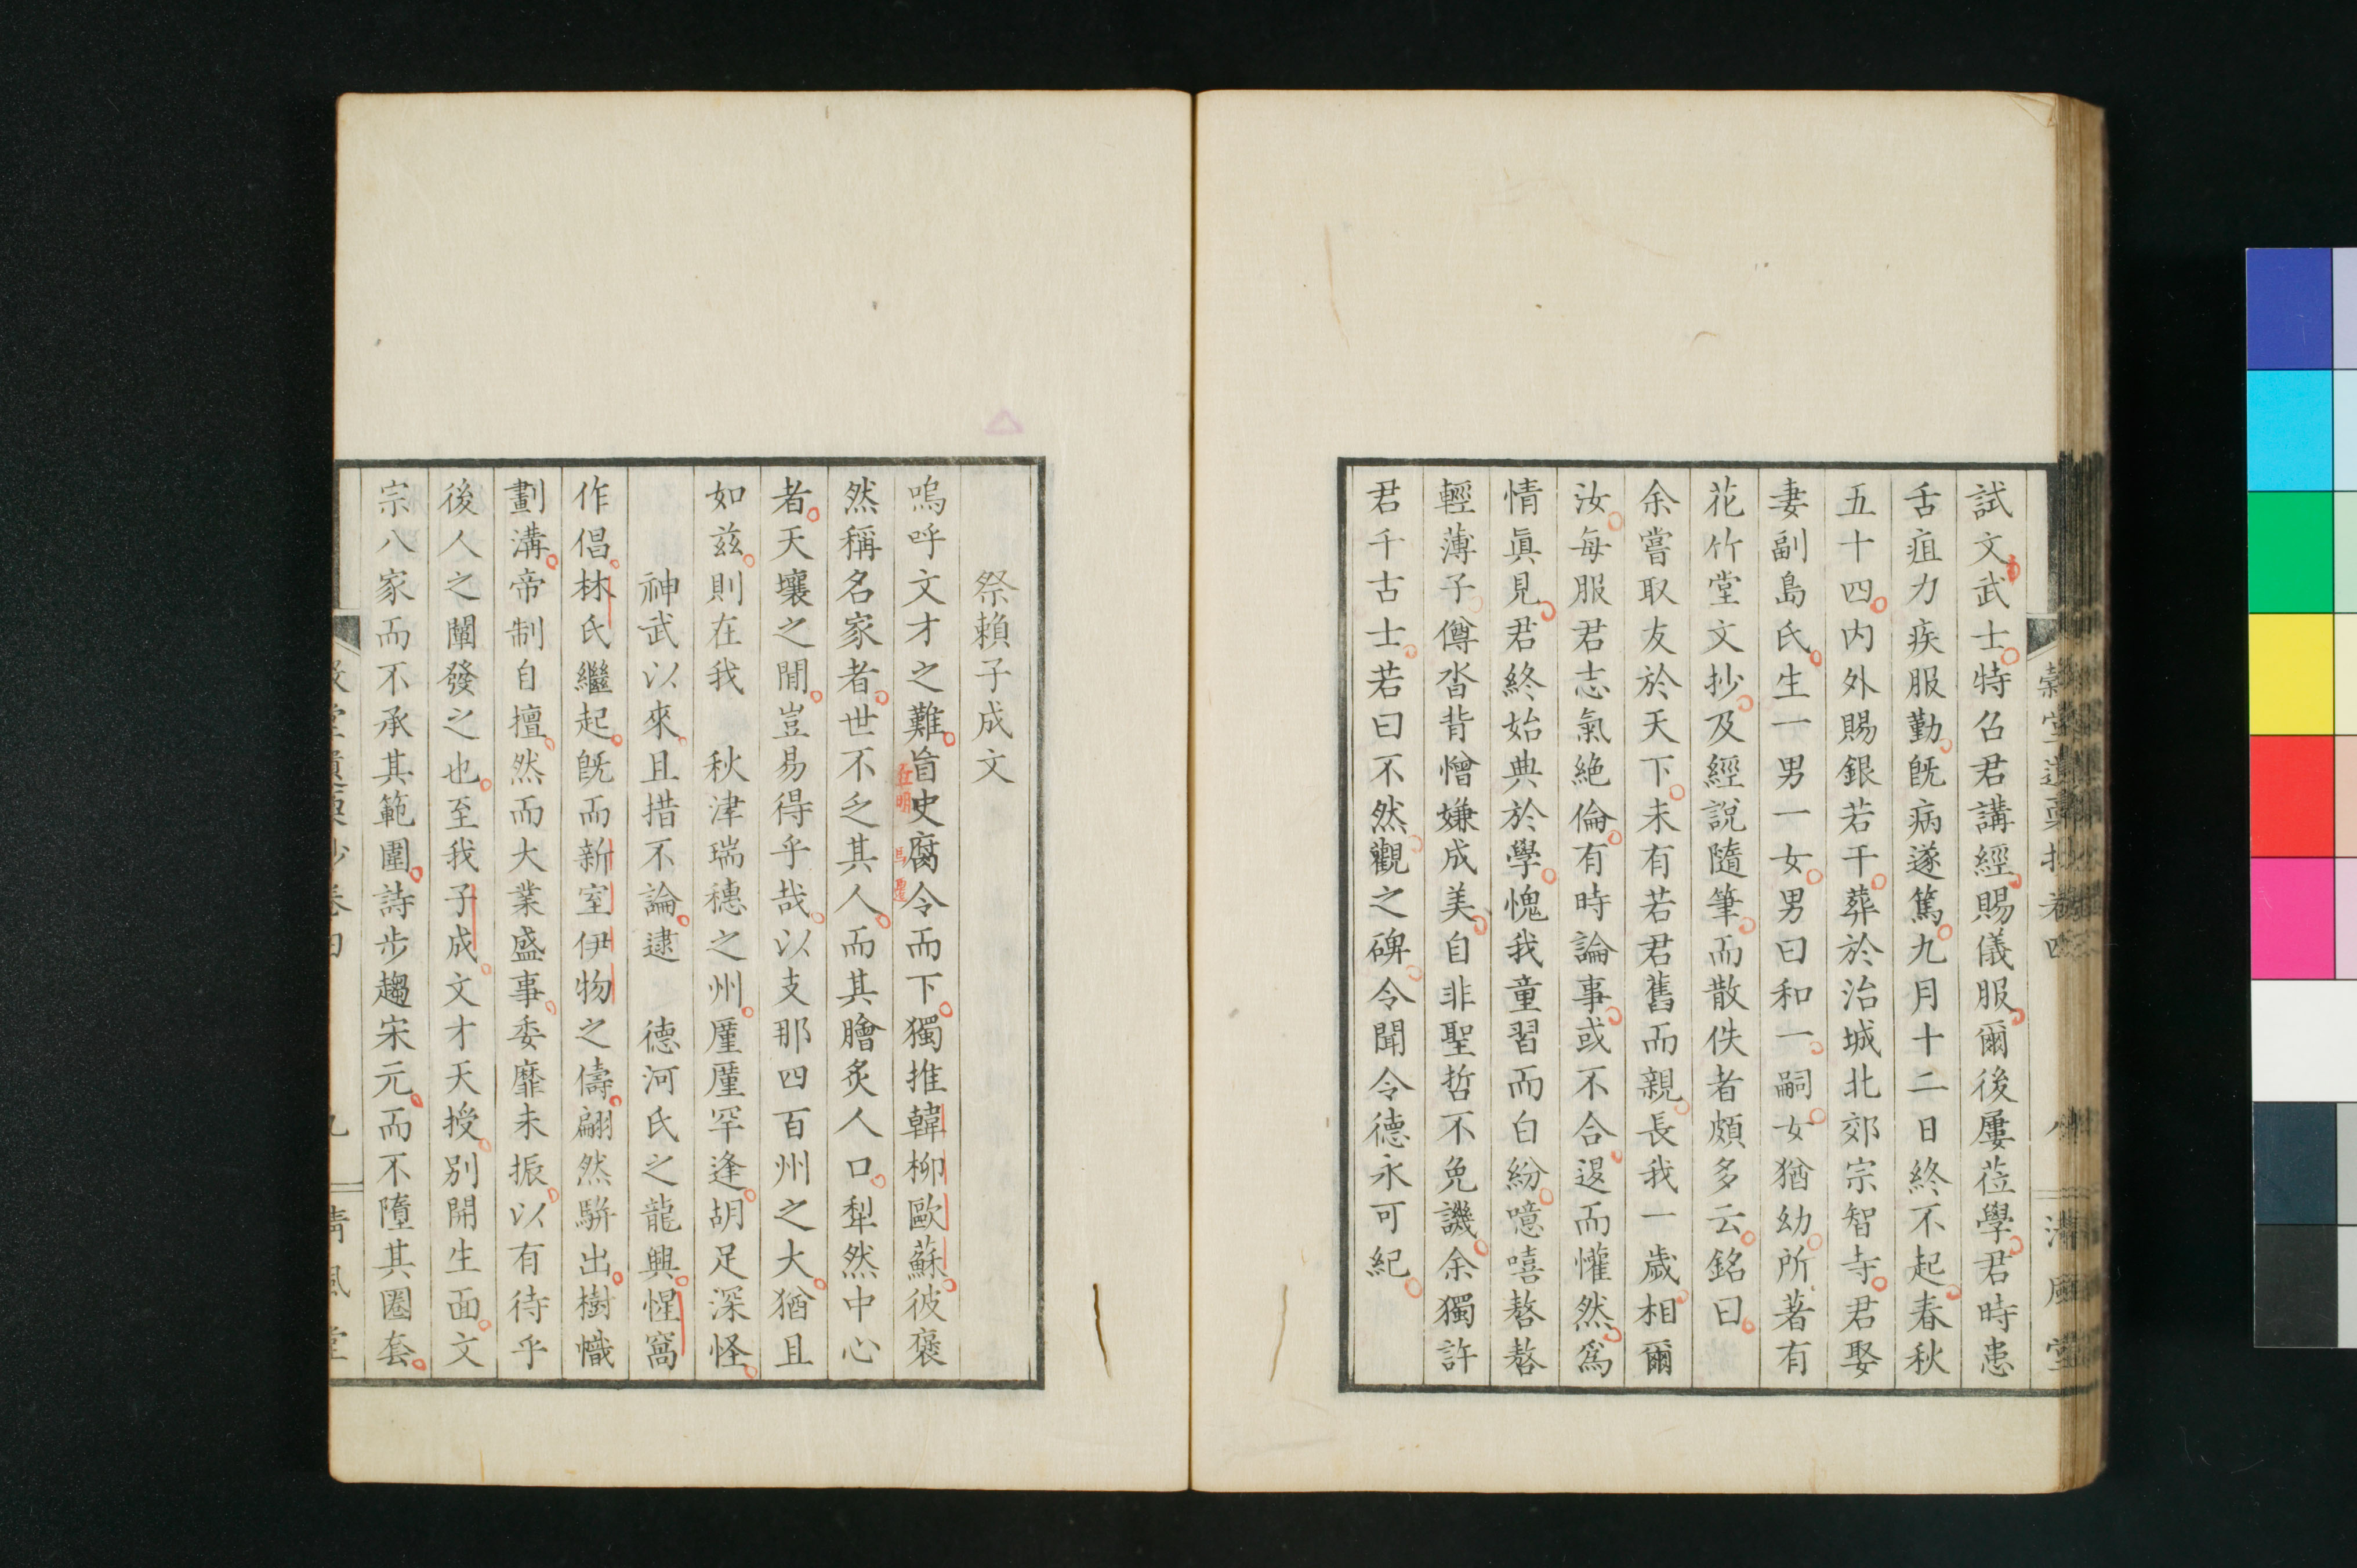 試文武士特召君講經賜儀服爾後屢莅學君時患
舌疽力疾服勤旣病遂篤九月十二日終不起春秋
五十四内外賜銀若干葬於治城北郊宗智寺君娶
妻副島氏生一男一女男曰和一嗣女猶幼所著有
花竹堂文抄及經說隨筆而散佚者頗多云銘曰
余嘗取友於天下未有若君舊而親長我一歲相爾
汝每服君志氣絶倫有時論事或不合退而懽然爲
情眞見君終始典於學愧我童習而白紛噫嘻嗸嗸
輕薄子僔沓背憎嫌成美自非聖哲不免譏余獨許
君千古士若曰不然觀之碑令聞令德永可紀
祭賴子成文
嗚呼文才之難盲史腐令而下獨推韓柳歐蘇彼褒
丘明
馬遷
然稱名家者世不乏其人而其膾炙人口犁然中心
者天壤之間豈易得乎哉以支那四百州之大猶且
如茲則在我 秋津瑞穗之州厪厪罕逢胡足深怪
神武以來且措不論逮 德河氏之龍興惺窩
作倡林氏繼起旣而新室伊物之儔翩然騈出樹幟
劃溝帝制自擅然而大業盛事委靡未振以有待乎
後人之闡發之也至我子成文才天授別開生面文
宗八家而不承其範圍詩步趨宋元而不墮其圈套
堂遺稾抄卷四
九
清風堂